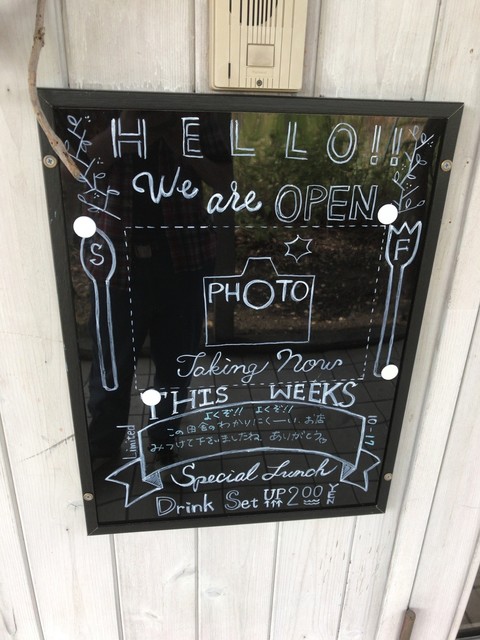 HELLO!!
We are OPEN
S
F
PHOTO
Taking Now
THIS WEEKS
よくぞ!! よくぞ!!
この田舎のわかりにくーい、お店
みつけて下さいましたね ありがとう。
Limited
10-15
Special Lunch
Drink Set UP 200 YEN